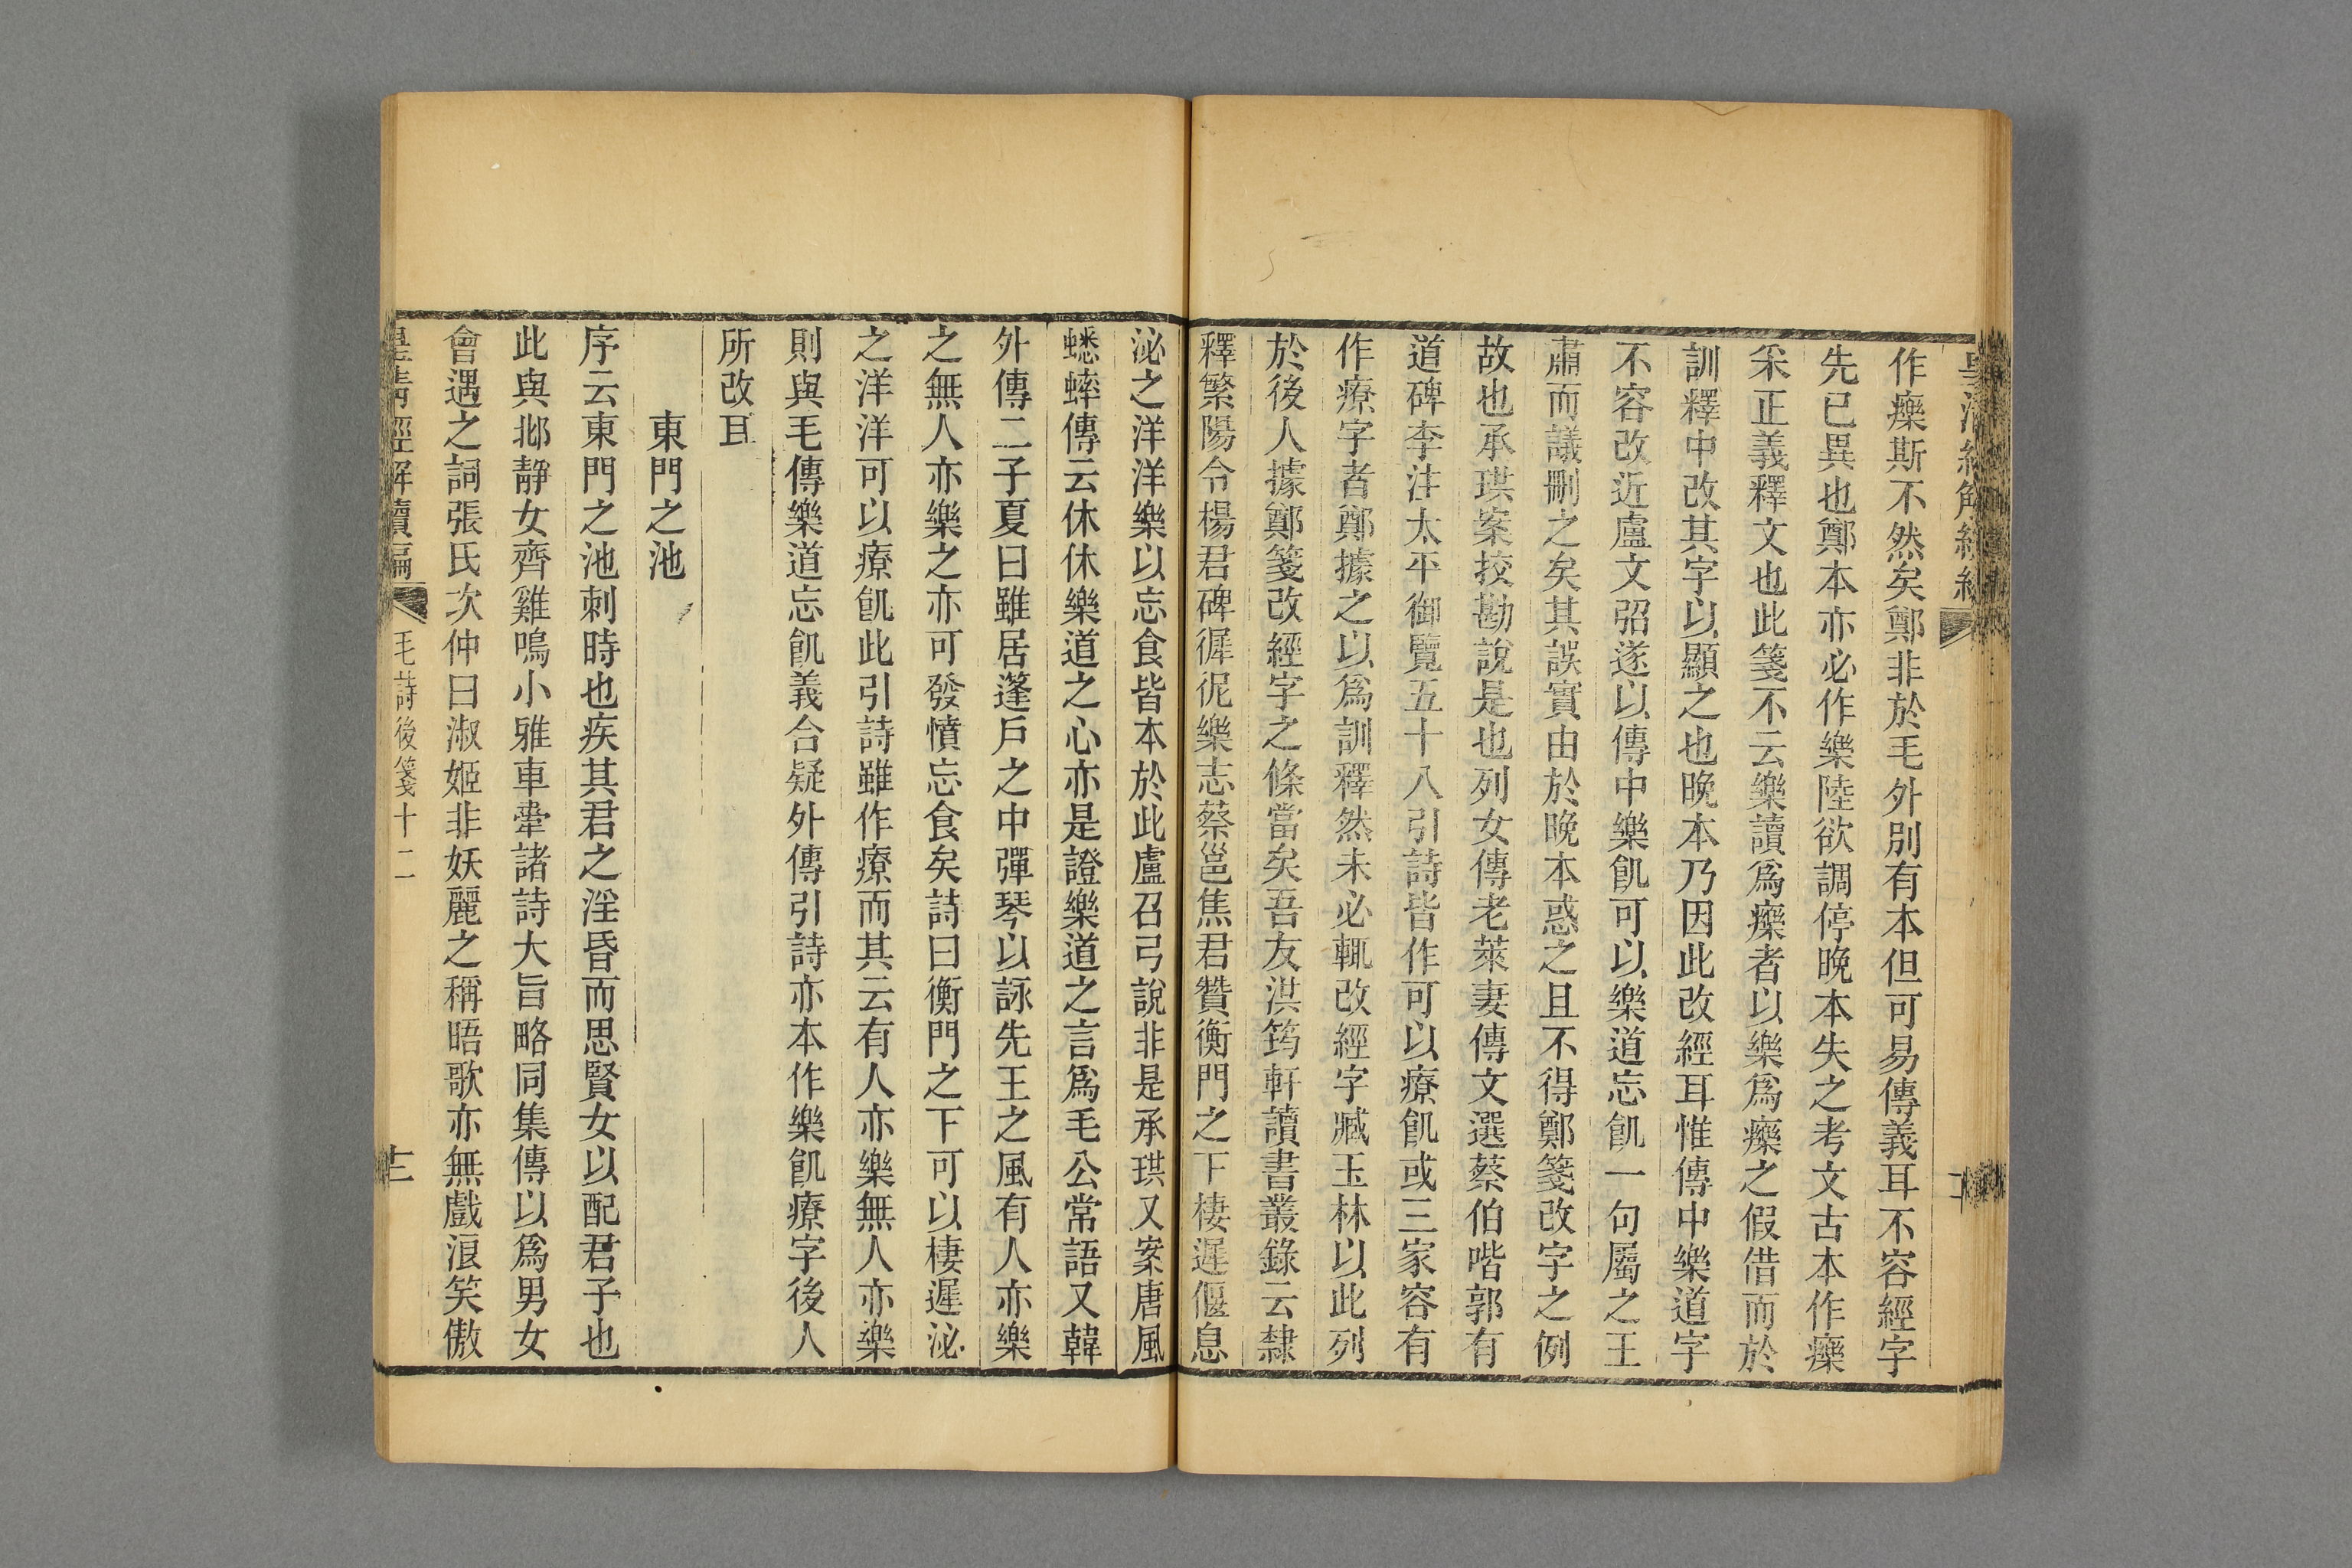 作𤻲斯不然矣鄭非於毛外別有本但可易傳義耳不容經字
先已異也鄭本亦必作樂陸欲調停晚本失之考文古本作𤻲
釆正義釋文也此箋不云樂讀爲𤻲者以樂爲𤻲之假借而於
訓釋中改其字以顯之也晚本乃因此改經耳惟傳中樂道字
不容改近盧文弨遂以傳中樂飢可以樂道忘飢一句屬之王
肅而議刪之矣其誤實由於晚本惑之且不得鄭箋改字之例
故也承珙案挍勘說是也列女傳老萊妻傳文選蔡伯喈郭有
道碑李注太平御覽五十八引詩皆作可以療飢或三家容有
作療字者鄭據之以爲訓釋然未必輒改經字臧玉林以此列
於後人據鄭箋改經字之條當矣吾友洪筠軒讀書叢錄云隸
釋繁陽令楊君碑徲㣇樂志蔡邕焦君贊衡門之下棲遲偃息
泌之洋洋樂以忘食皆本於此盧召弓說非是承珙又案唐風
蟋蟀傳云休休樂道之心亦是證樂道之言爲毛公常語又韓
外傳二子夏曰雖居蓬戶之中彈琴以詠先王之風有人亦樂
之無人亦樂之亦可發憤忘食矣詩曰衡門之下可以棲遲泌
之洋洋可以療飢此引詩雖作療而其云有人亦樂無人亦樂
則與毛傳樂道忘飢義合疑外傳引詩亦本作樂飢療字後人
所改耳
東門之池
序云東門之池刺時也疾其君之淫昏而思賢女以配君子也
此與邶靜女齊雞鳴小雅車舝諸詩大旨略同集傳以爲男女
會遇之詞張氏次仲曰淑姬非妖麗之稱晤歌亦無戲浪笑傲
皇淸經解續編 毛詩後箋十二 十二